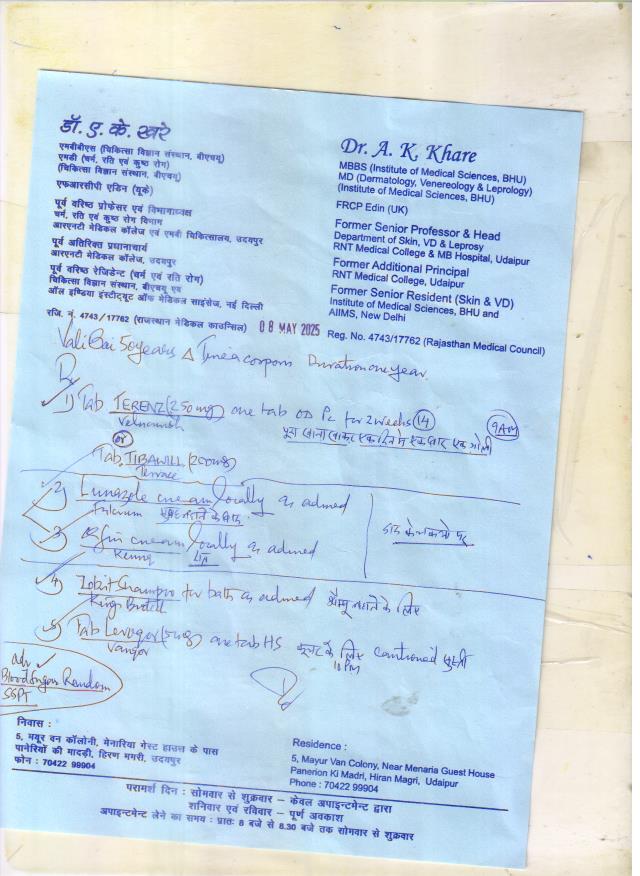 डॉ. ए. के. खरे
एमबीबीएस (चिकित्सा विज्ञान संस्थान, बीएचयू)
एमडी (चर्म, रति एवं कुष्ठ रोग)
(चिकित्सा विज्ञान संस्थान, बीएचयू)
एफआरसीपी एडिन (यूके)
पूर्व वरिष्ठ प्रोफेसर एवं विभागाध्यक्ष
चर्म, रति एवं कुष्ठ रोग विभाग
आरएनटी मेडिकल कॉलेज एवं एमबी चिकित्सालय, उदयपुर
पूर्व अतिरिक्त प्रधानाचार्य
आरएनटी मेडिकल कॉलेज, उदयपुर
पूर्व वरिष्ठ रेजिडेन्ट (चर्म एवं रति रोग)
चिकित्सा विज्ञान संस्थान, बीएचयू एवं
ऑल इण्डिया इंस्टीट्यूट ऑफ मेडिकल साइंसेज, नई दिल्ली
रजि. नं. 4743/17762 (राजस्थान मेडिकल काउन्सिल)
Dr. A. K. Khare
MBBS (Institute of Medical Sciences, BHU)
MD (Dermatology, Venereology & Leprology)
(Institute of Medical Sciences, BHU)
FRCP Edin (UK)
Former Senior Professor & Head
Department of Skin, VD & Leprosy
RNT Medical College & MB Hospital, Udaipur
Former Additional Principal
RNT Medical College, Udaipur
Former Senior Resident (Skin & VD)
Institute of Medical Sciences, BHU and
AIIMS, New Delhi
Reg. No. 4743/17762 (Rajasthan Medical Council)
08 MAY 2025
Vali Bai 50 years Δ Tinea corporis Duration one year.
Rx
1) Tab TERENZ (250mg) one tab OD PC for 2 weeks 14 9AM
or
Tab. (200mg)
2) cream locally as advised
3) cream locally as advised
4) for bath as advised
5) Tab (5mg) one tab HS 10 PM
adv
Blood Sugar Random
SGPT
निवास :
5, मयूर वन कॉलोनी, मेनारिया गेस्ट हाउस के पास
पानेरियों की मादड़ी, हिरण मगरी, उदयपुर
फोन : 70422 99904
Residence :
5, Mayur Van Colony, Near Menaria Guest House
Panerion Ki Madri, Hiran Magri, Udaipur
Phone : 70422 99904
परामर्श दिन : सोमवार से शुक्रवार – केवल अपाइन्टमेन्ट द्वारा
शनिवार एवं रविवार – पूर्ण अवकाश
अपाइन्टमेन्ट लेने का समय : प्रातः 8 बजे से 8.30 बजे तक सोमवार से शुक्रवार